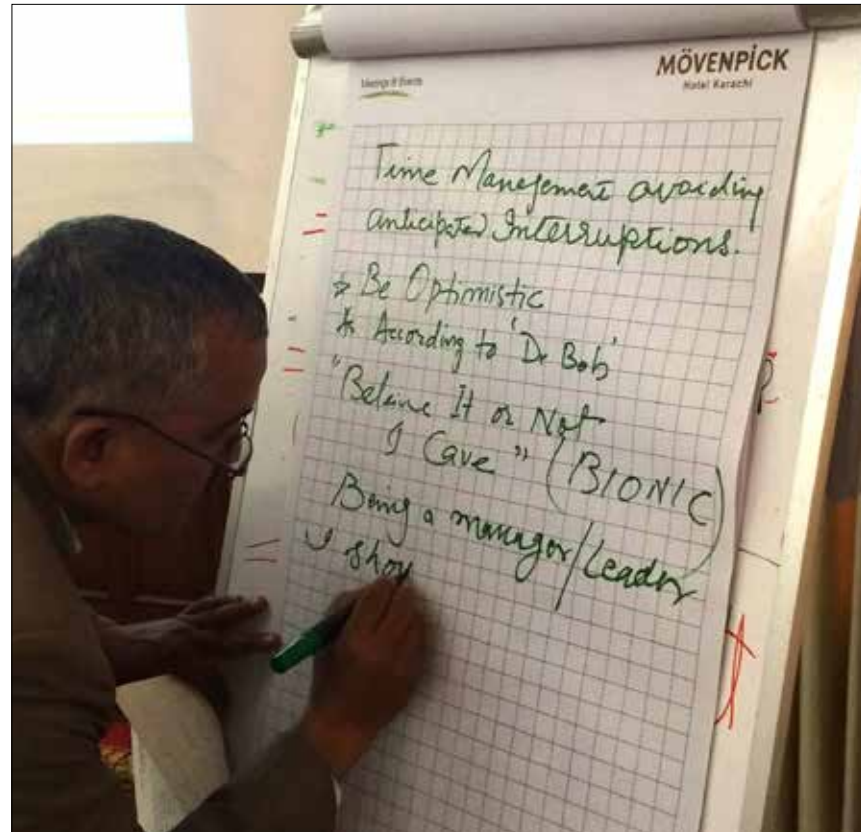 Meetings & Events
MÖVENPICK
Hotel Karachi
Time Management avoiding
anticipated Interruptions.
* Be Optimistic
* According to 'Dr Bob'
"Beleive It or Not
I Cave" (BIONIC)
Being a manager/Leader
shou